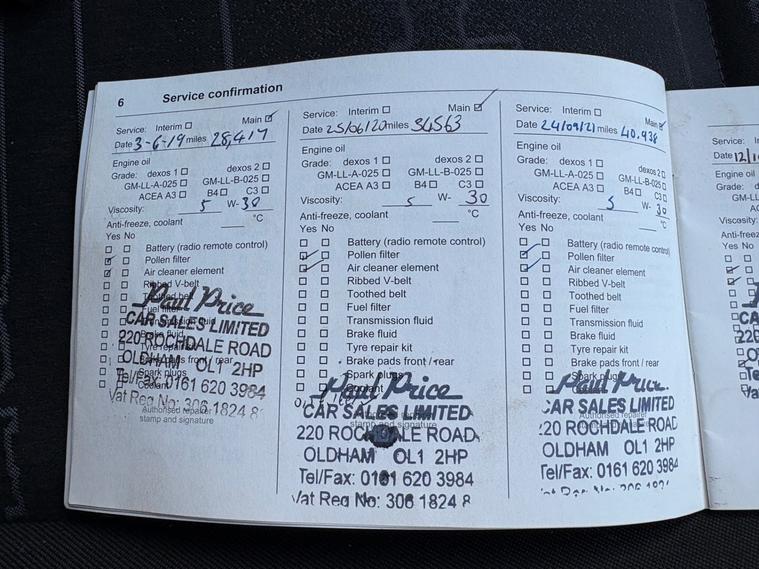 6 Service confirmation
Service: Interim Main
Date 3-6-19 miles 28,417
Engine oil
Grade: dexos 1 dexos 2
GM-LL-A-025 GM-LL-B-025
ACEA A3 B4 C3
Viscosity: 5 W- 30
Anti-freeze, coolant °C
Yes No
Battery (radio remote control)
Pollen filter
Air cleaner element
Ribbed V-belt
Toothed belt
Fuel filter
Brake fluid
Tyre repair kit
Brake pads front / rear
Spark plugs
Coolant
Paul Price
CAR SALES LIMITED
220 ROCHDALE ROAD
OLDHAM OL1 2HP
Tel/Fax: 0161 620 3984
Vat Reg No: 306 1824 8
Authorised repairer
stamp and signature
Service: Interim Main
Date 25/06/20 miles 34563
Engine oil
Grade: dexos 1 dexos 2
GM-LL-A-025 GM-LL-B-025
ACEA A3 B4 C3
Viscosity: 5 W- 30
Anti-freeze, coolant °C
Yes No
Battery (radio remote control)
Pollen filter
Air cleaner element
Ribbed V-belt
Toothed belt
Fuel filter
Transmission fluid
Brake fluid
Tyre repair kit
Brake pads front / rear
Spark plugs
Coolant
Paul Price
CAR SALES LIMITED
stamp and signature
220 ROCHDALE ROAD
OLDHAM OL1 2HP
Tel/Fax: 0161 620 3984
Vat Reg No: 306 1824 8
Service: Interim Main
Date 24/09/21 miles 40,938
Engine oil
Grade: dexos 1 dexos 2
GM-LL-A-025 GM-LL-B-025
ACEA A3 B4 C3
Viscosity: 5 W- 30
Anti-freeze, coolant °C
Yes No
Battery (radio remote control)
Pollen filter
Air cleaner element
Ribbed V-belt
Toothed belt
Fuel filter
Transmission fluid
Brake fluid
Tyre repair kit
Brake pads front / rear
Spark plugs
Paul Price
CAR SALES LIMITED
Authorised repairer
220 ROCHDALE ROAD
OLDHAM OL1 2HP
Tel/Fax: 0161 620 3984
Date 12/1
Engine oil
Grade:
Viscosity:
Anti-freeze
Yes No